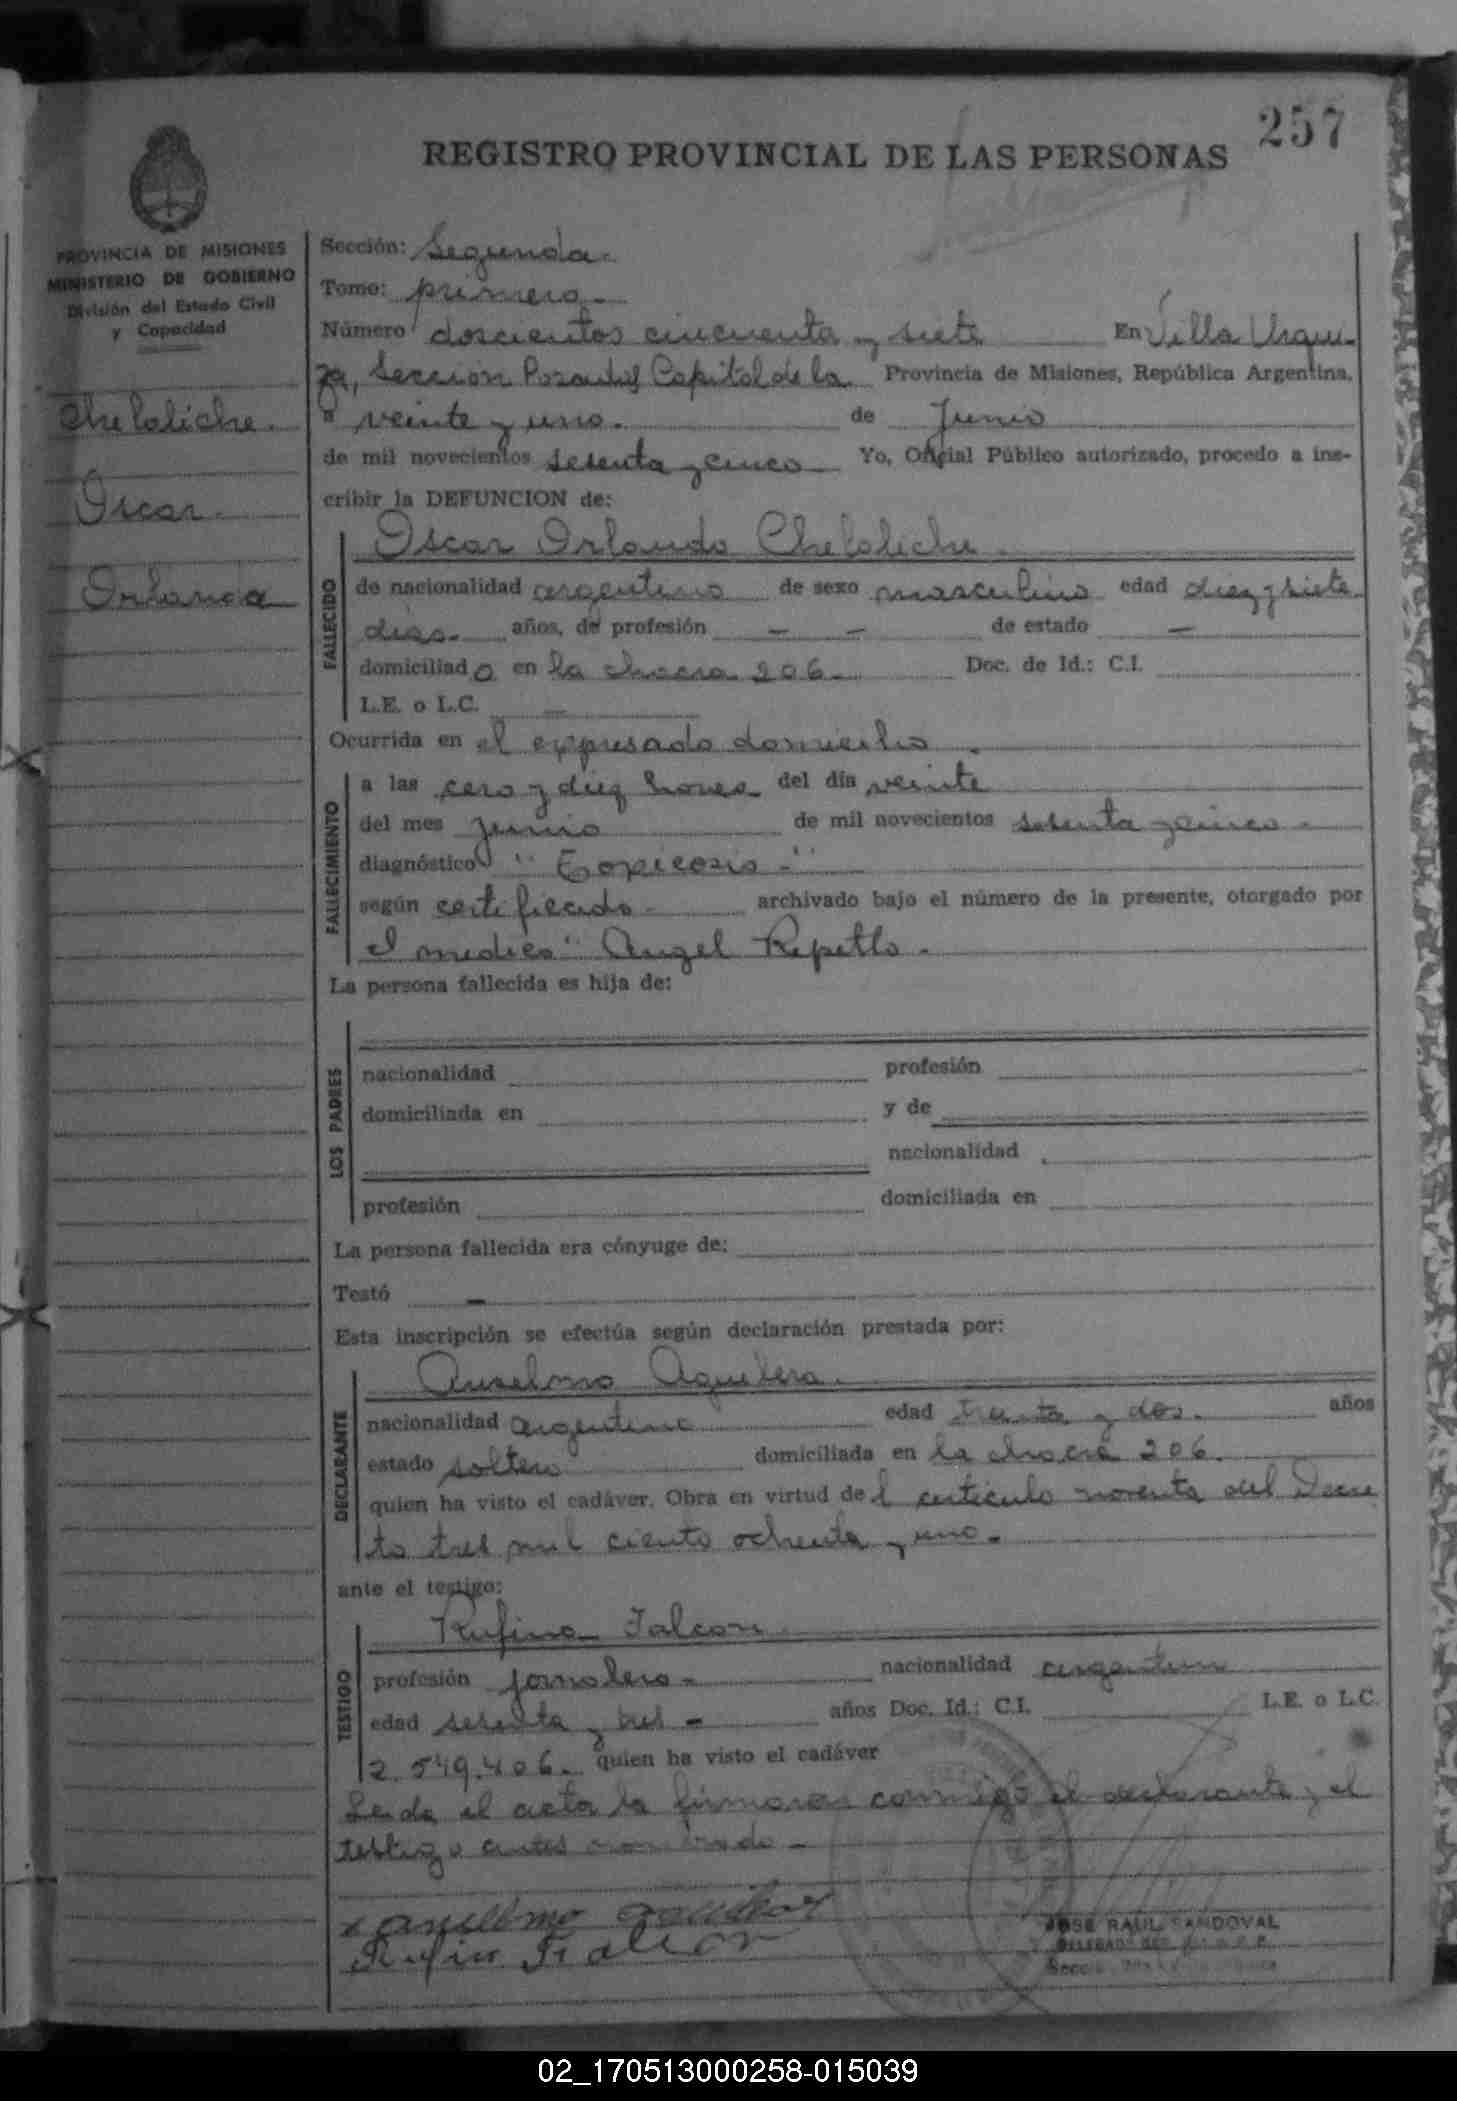 257
REGISTRO PROVINCIAL DE LAS PERSONAS
PROVINCIA DE MISIONES
MINISTERIO DE GOBIERNO
División del Estado Civil
y Capacidad
Cheloliche.
Oscar.
Orlando
Sección: Segunda.
Tomo: primero.
Número doscientos cincuenta y siete En Villa Urqui-
za, Sección Posadas Capital de la Provincia de Misiones, República Argentina,
a veinte y uno. de Junio
de mil novecientos sesenta y cinco Yo, Oficial Público autorizado, procedo a ins-
cribir la DEFUNCION de:
Oscar Orlando Cheloliche.
FALLECIDO
de nacionalidad argentino de sexo masculino edad diez y siete
dias. años, de profesión — — de estado —
domiciliado en la chacra 206. Doc. de Id.: C.I.
L.E. o L.C. —
Ocurrida en el expresado domicilio.
FALLECIMIENTO
a las cero y diez horas del día veinte
del mes junio de mil novecientos sesenta y cinco.
diagnóstico "Toxicosis-"
según certificado- archivado bajo el número de la presente, otorgado por
el medico Angel Repetto.
La persona fallecida es hija de:
LOS PADRES
nacionalidad profesión
domiciliada en y de
nacionalidad
profesión domiciliada en
La persona fallecida era cónyuge de:
Testó —
Esta inscripción se efectúa según declaración prestada por:
Anselmo Aguilera.
DECLARANTE
nacionalidad argentino edad treinta y dos. años
estado soltero domiciliada en la chacra 206.
quien ha visto el cadáver. Obra en virtud del articulo noventa del Decre
to tres mil ciento ochenta y uno.
ante el testigo:
Rufino Falcon
TESTIGO
profesión jornalero- nacionalidad argentino
edad sesenta y tres - años Doc. Id.: C.I. L.E. o L.C.
2.549.406. quien ha visto el cadáver
Leida el acta la firmaron conmigo el declarante y el
testigo antes nombrado-
JOSE RAUL SANDOVAL
02_170513000258-015039